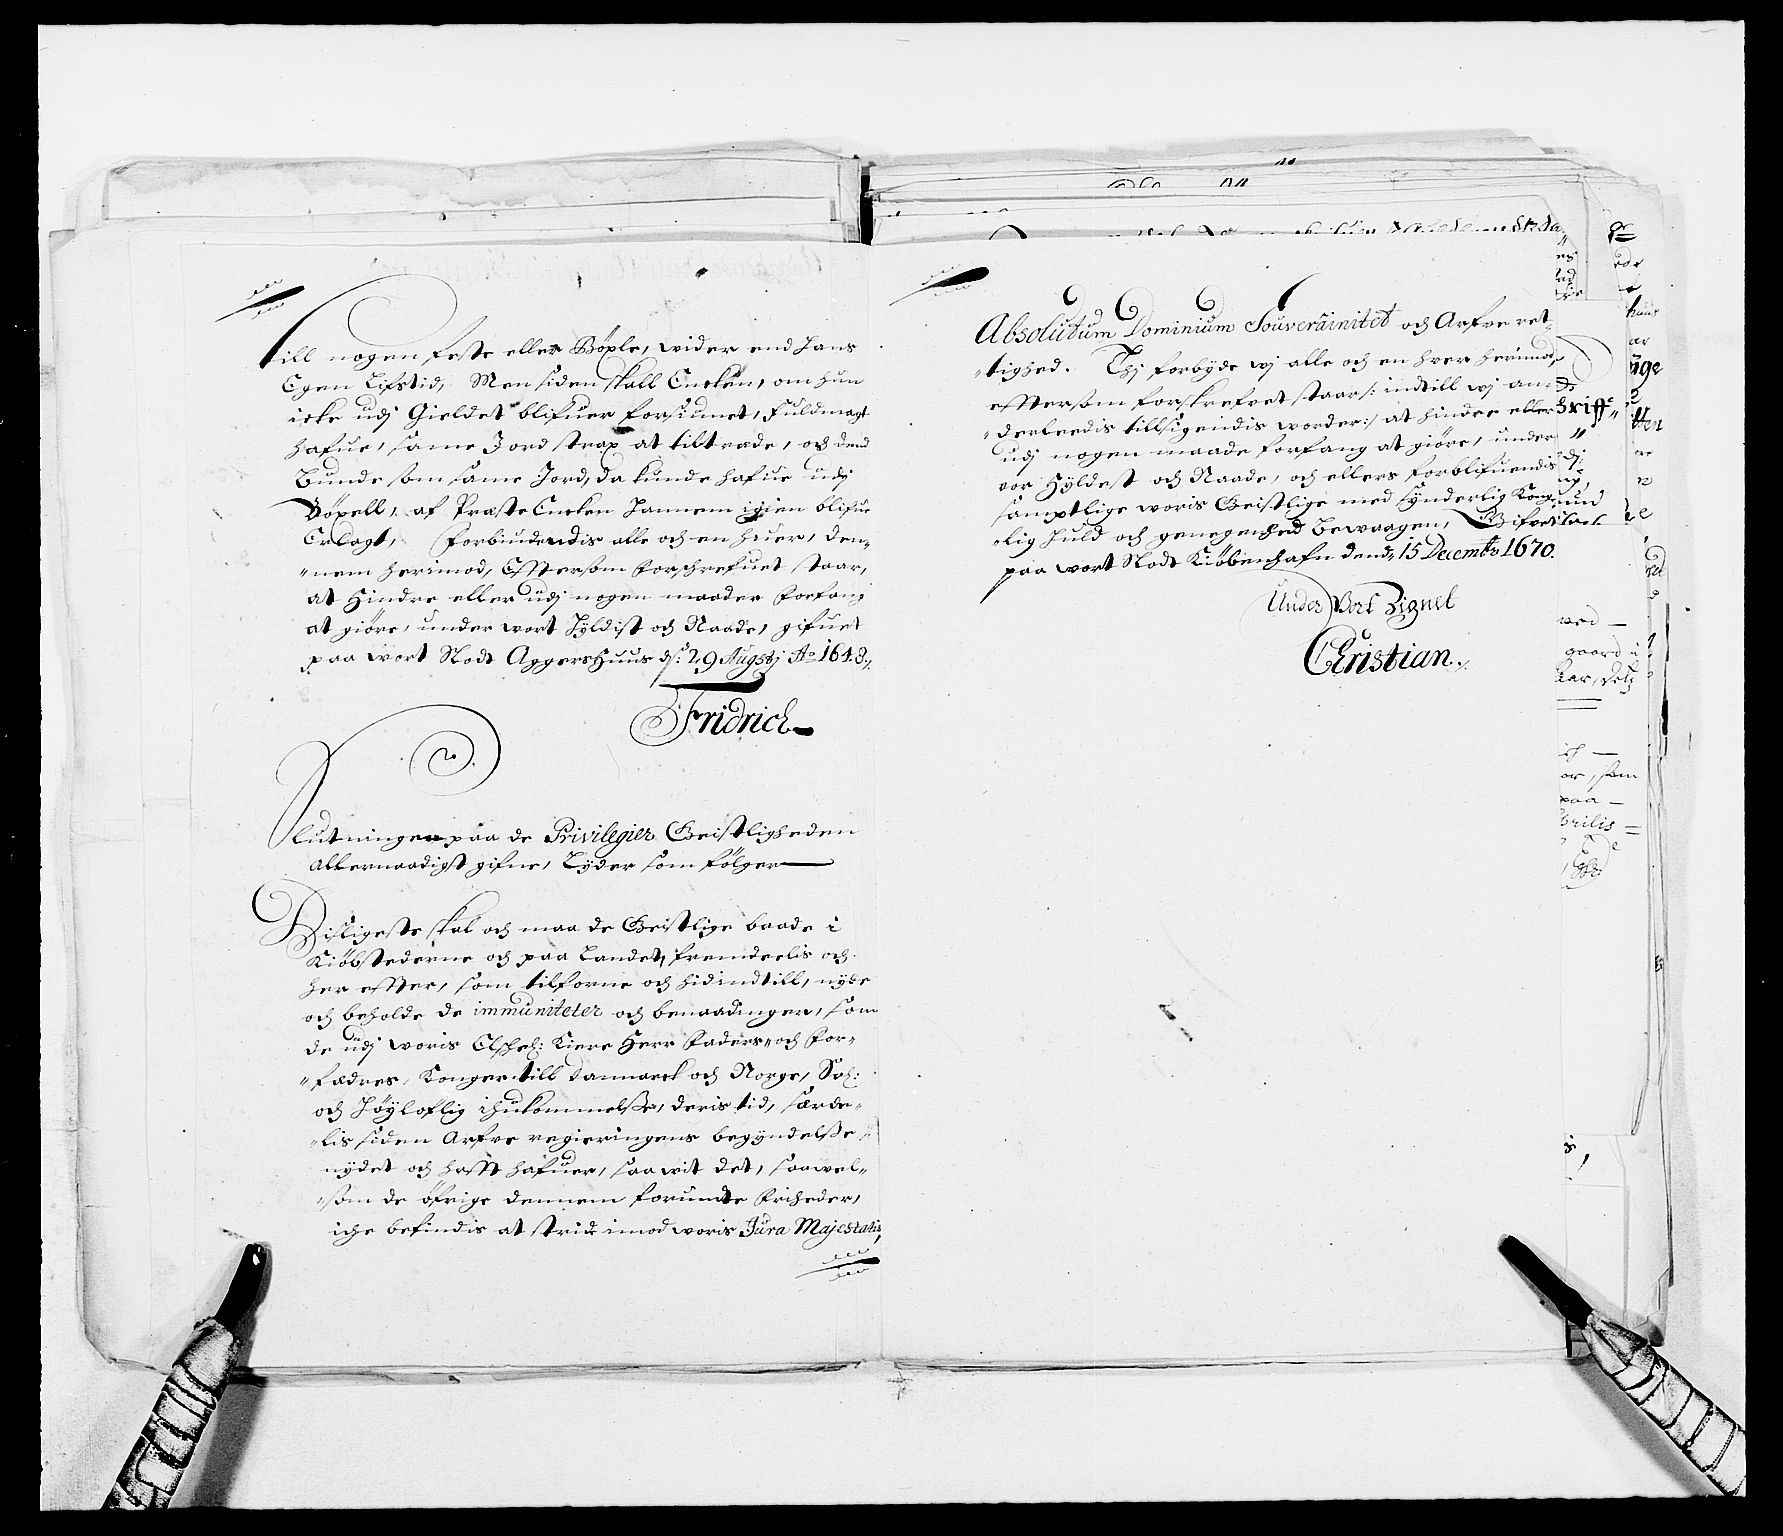 till nogen feste eller Böxle, wider end hans
Egen Lifstid, Men siden skall Encken, om hun
icke udj Gieldet blifuer forsiunet, Fuldmagt
hafue, same Jord strax at tiltræde, och dend
Bunde som same Jord, da kunde hafue udj
Böxell, af Præste Encken hannem igien blifue
Erlagt, forbiudendis alle och en huer, den„
„nem herimod, Effterom forschrefuet staar,
at Hindre eller udj nogen maader Forfang
at giöre, under wort Hyldist och Naade, gifuet
paa wort Slodt AggersHuus ds: 29 Augstj Ao 1648.
Fridrich
Slutningen paa de Privilegier Geistligheden
allernaadigst gifne, Lyder som fölger
Disligeste skal och maa de Geistlige baade i
Kiöbstederne och paa Landet, fremdeelis och
her effter, som tilforne och hidindtill, nyde
och beholde de immuniteter och benaadinger, som
de udj woris Elschel: Kiere Herr Faders„ och For„
„fædres, Konger till Danmarck och Norge, Sal:
och Höyloflig ihukommelsße, deris tid, særde„
„lis siden Arfve regieringens begyndelsße
nydet och hafft hafuer, saawit det, saawel„
„som de öfrige dennem forundte Friheder,
iche befindis at stride imod woris Jura Majestatis,
Absolutum Dominium Souverainitet och Arfve ret„
„tighed. Thj forbyde wj alle och en hver herimod,
effterson forskrefvet staar /: indtill wj an
„derleedis tillsigendis worder :/ at hindre eller
udj nogen maade forfang at giöre, under
vor Hyldest och Naade, och ellers forblifuendis
samptlige woris Geistlige med synderlig Konge
„lig huld och genegenhed bewaagen, Gifvet
paa wort Slodt Kiöbenhafn dend 15 Decembr 1670.
Under Vort Zignet
Christian.